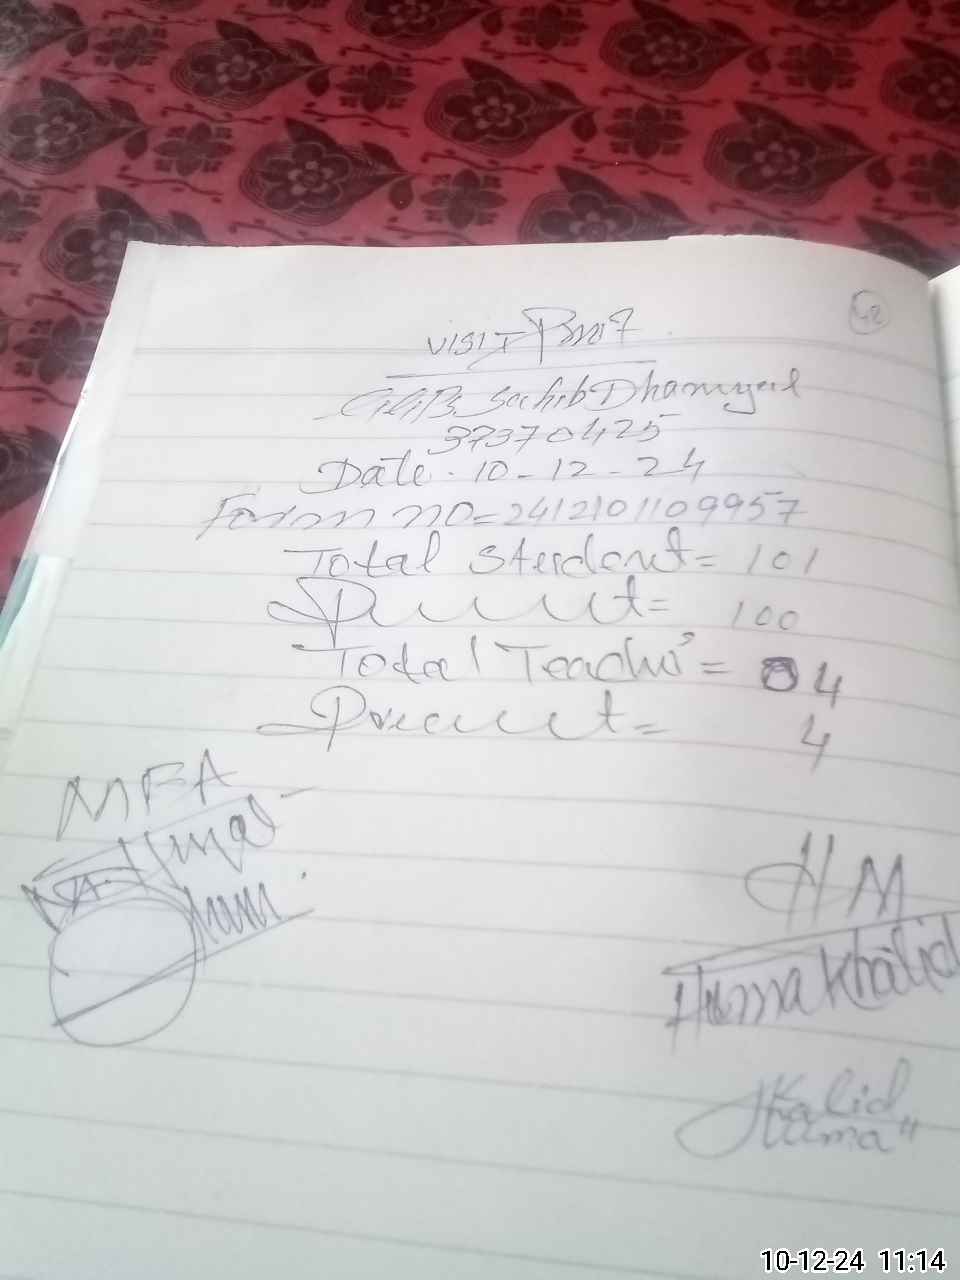 42
VISIT Proof
G.G.P.S Sahib Dhamyal
37370425
Date. 10-12-24
Form no=2412101109957
Total Student= 101
Present= 100
Total Teacher's= 04
Present= 4
MEA
HM
Huma Khalid
Khalid
Huma"
10-12-24 11:14